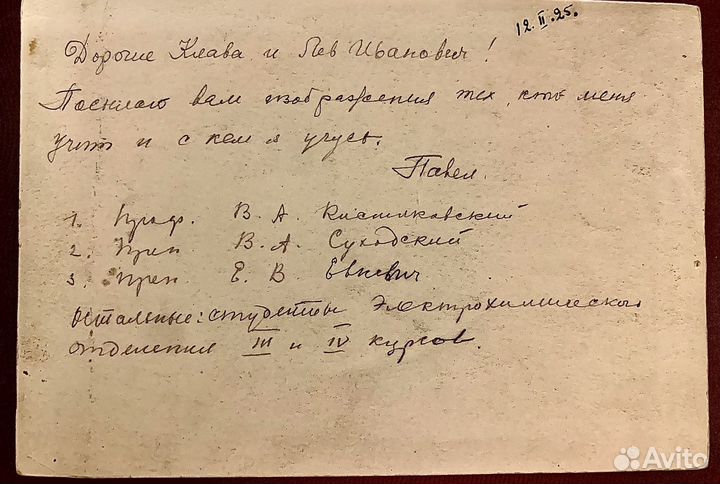 12.II.25.
Дорогие Клава и Лев Иванович!
Посылаю вам изображения тех, кто меня
учит и с кем я учусь.
Павел.
1. Проф. В. А. Кистяковский
2. Преп. В. А. Суходский
3. Преп. Е. В.
Остальные: студенты Электрохимического
отделения III и IV курсов.
Avito